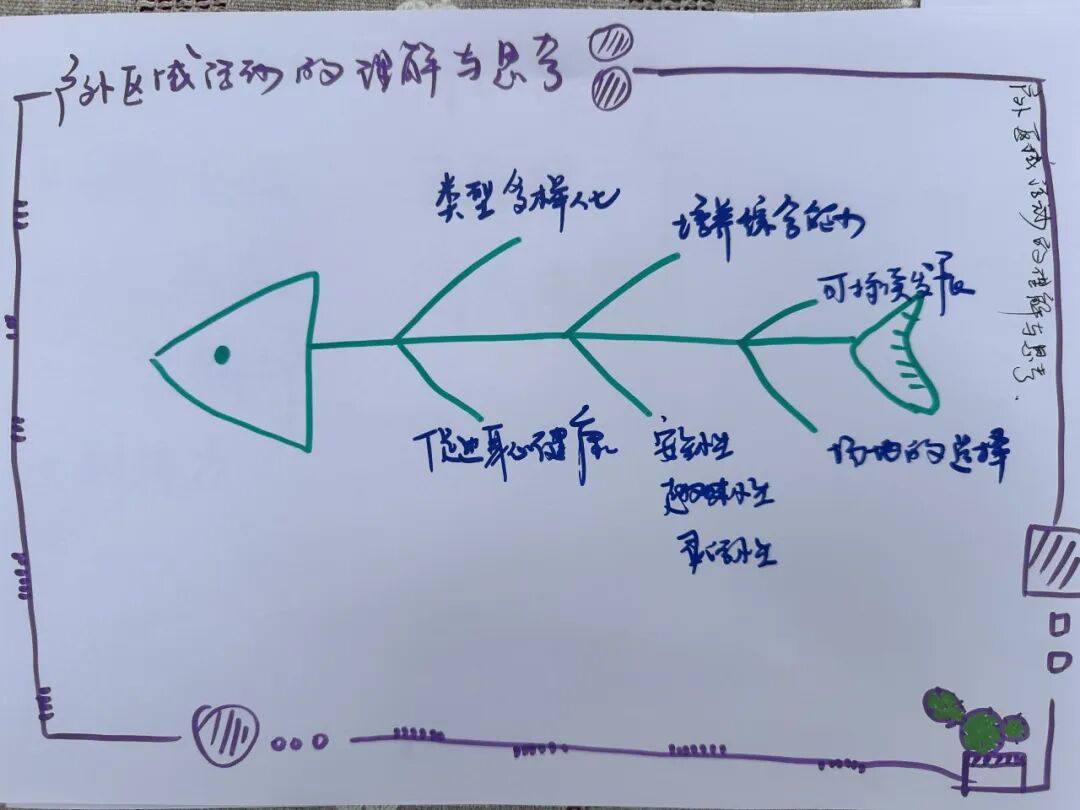 户外区域活动的理解与思考
户外区域活动的理解与思考.
类型多样化
培养综合能力
可持续发展
促进身心健康
安全性
趣味性
灵活性
场地的选择